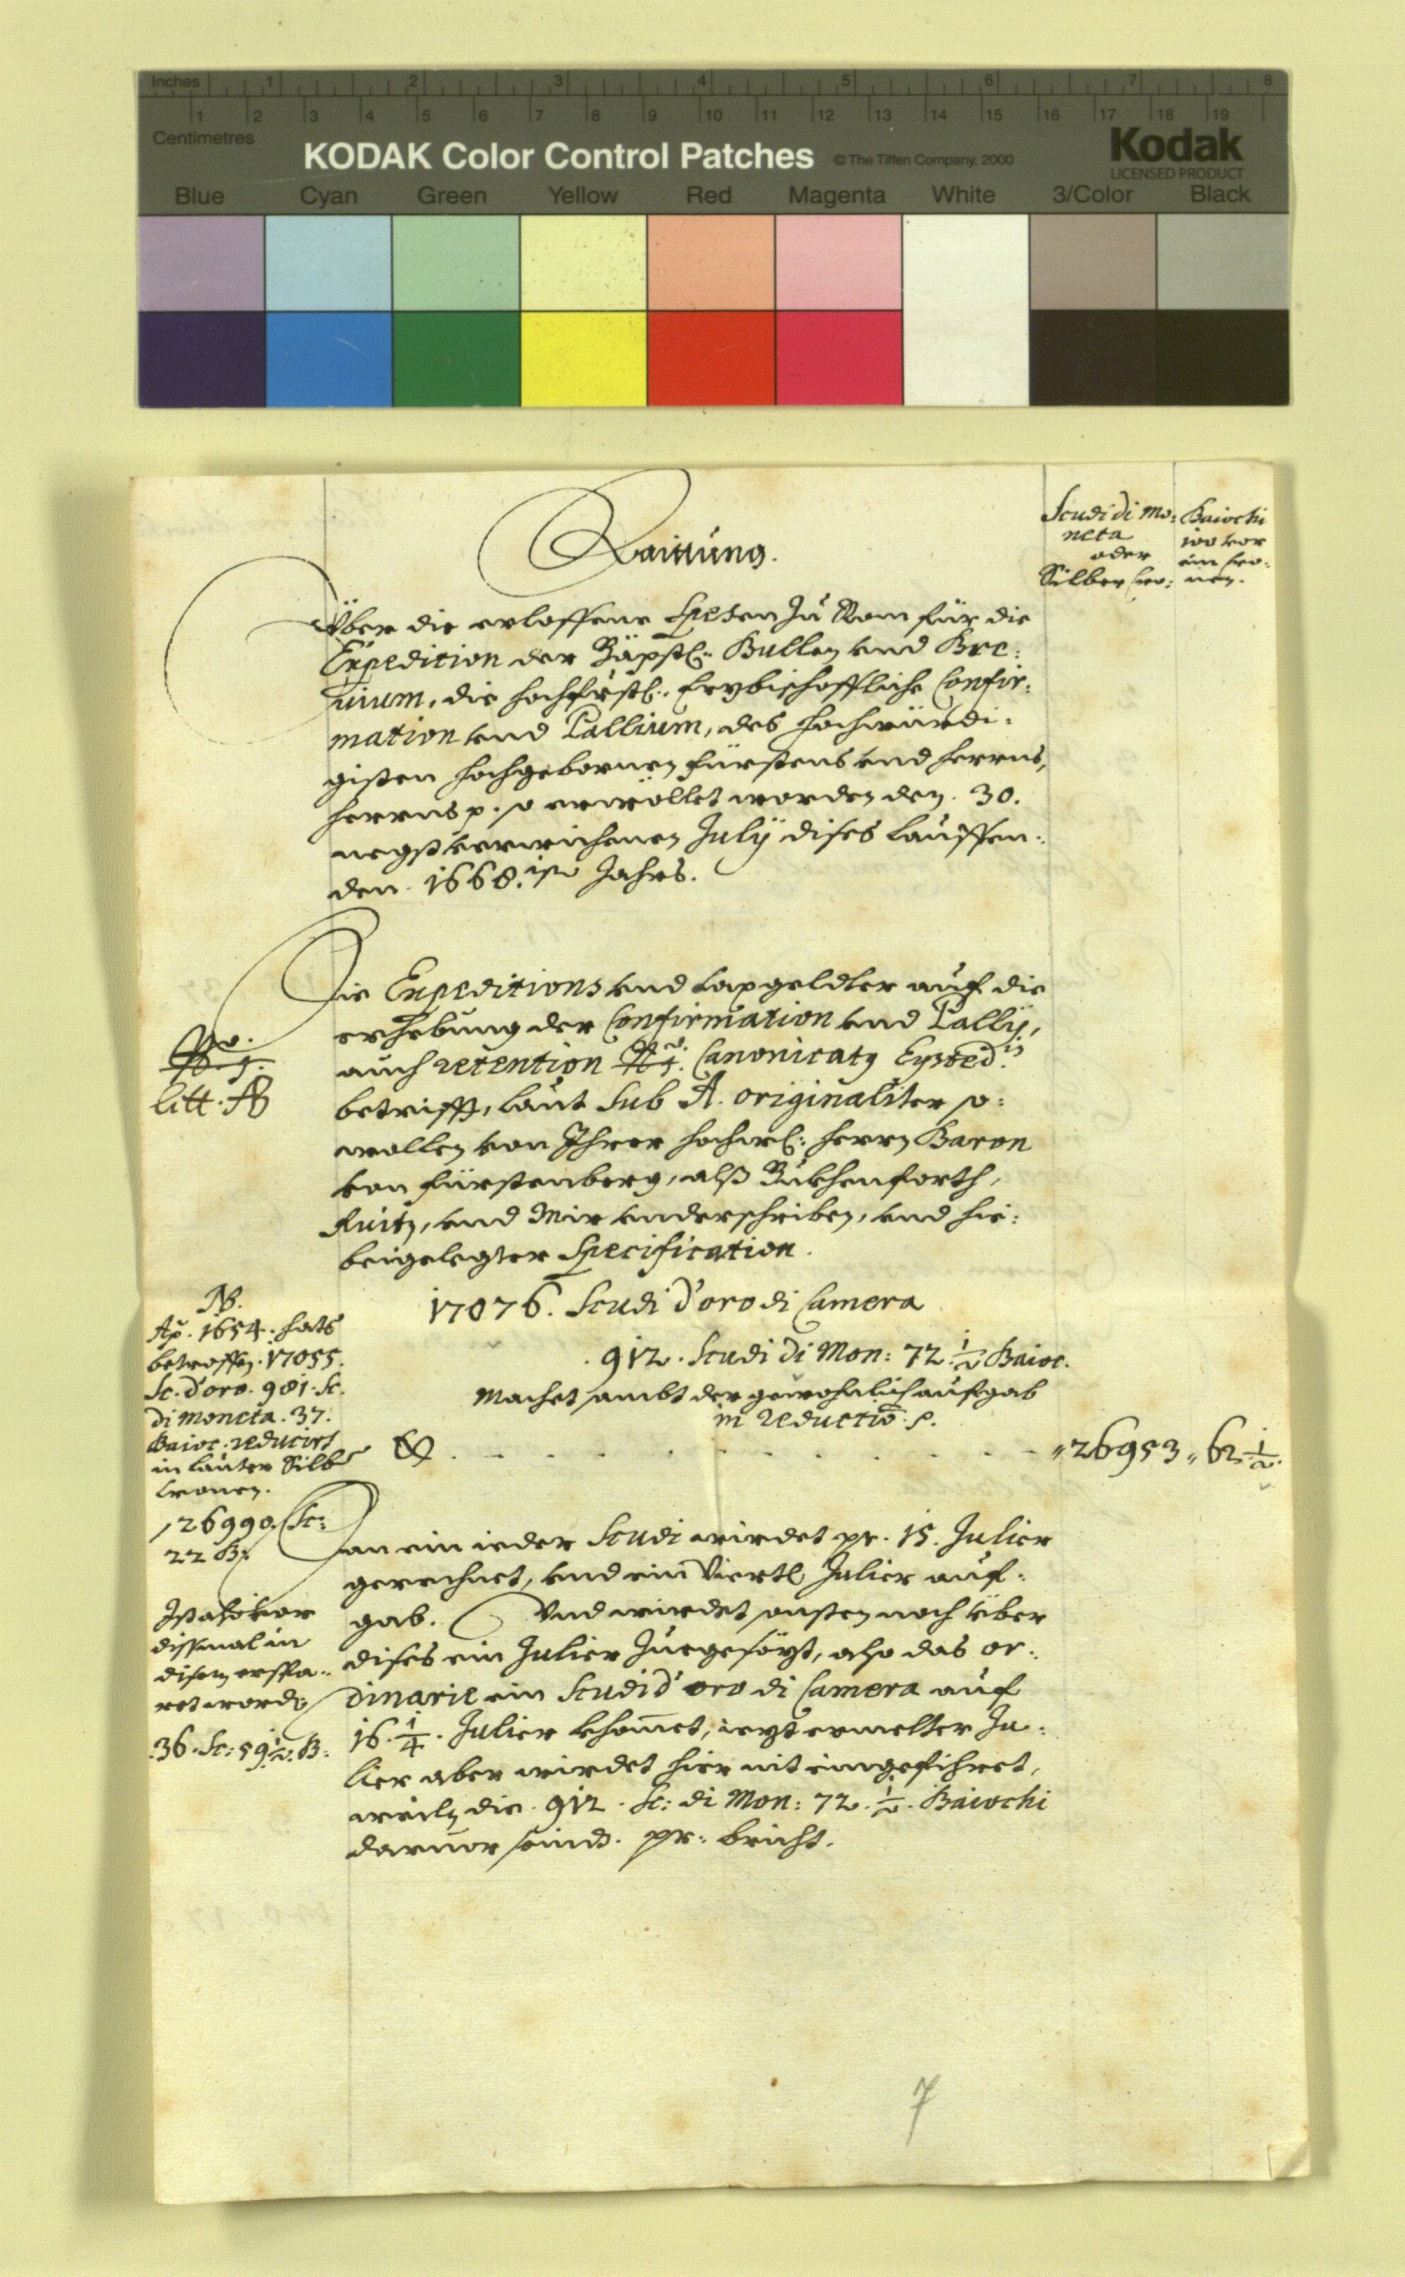 Inches 1 2 3 4 5 6 7 8
1 2 3 4 5 6 7 8 9 10 11 12 13 14 15 16 17 18 19
Centimetres
KODAK Color Control Patches © The Tiffen Company, 2000 Kodak
LICENSED PRODUCT
Blue Cyan Green Yellow Red Magenta White 3/Color Black
Raittung.
Scudi di Mo:
neta
oder
Silber Cro:
Baiochi
100 vor
ein Cro:
nen.
Über die erloffene Spesen zu Rom für die
Expedition der Bäpstl: Bullen und Bre:
uium, die hochfürstl: Erzbischoffliche Confir:
mation und Pallium, des hochwürdi:
gisten hochgebornen fürstens und herrns,
herrns p. so erwöllet worden den 30.
negst verwichenen July dises lauffen:
den 1668.isten Jahrs.
Die Expeditions und Taxgeldter auf die
erhebung der Confirmation und Pallÿ,
auch retention Canonicatq Eysted:is
betrifft, laut Sub A. originaliter so:
wollen von Ihrer hochw: herrn Baron
von fürstenberg, alß
und Mir underschriben, und hie:
beigelegter Specification.
litt. A
17076. Scudi d'oro di Camera
.912. Scudi di Mon: 72 1/2 Baioc.
Machet sambt der gewohnlich aufgab
in reductio p.
26953 " 62 1/2.
NB.
Aō. 1654. hats
betroffen. 17055.
Sc. d'oro. 981. Sc.
di moneta. 37.
Baioc. reducirt
in lauter Silber
Cronen.
26990. Sc:
22 B:
Ist also vor
dissmal in
disem erspa:
ret worden
36. Sc: 59 1/2. B:
Dan ein ieder Scudi wirdet pr. 15. Julier
gerechnet, und ein Viertl Julier auf:
gab. Und wirdet sonsten noch über
dises ein Julier zuegesözt, also das or:
dinarie ein Scudi d'oro di Camera auf
16. 1/4. Julier khomet, iezt ermelter Ju:
lier aber wirdet hier nit eingefihret,
weiln die 912. Sc: di Mon: 72. 1/2. Baiochi
daruor seind. pr: bricht.
7